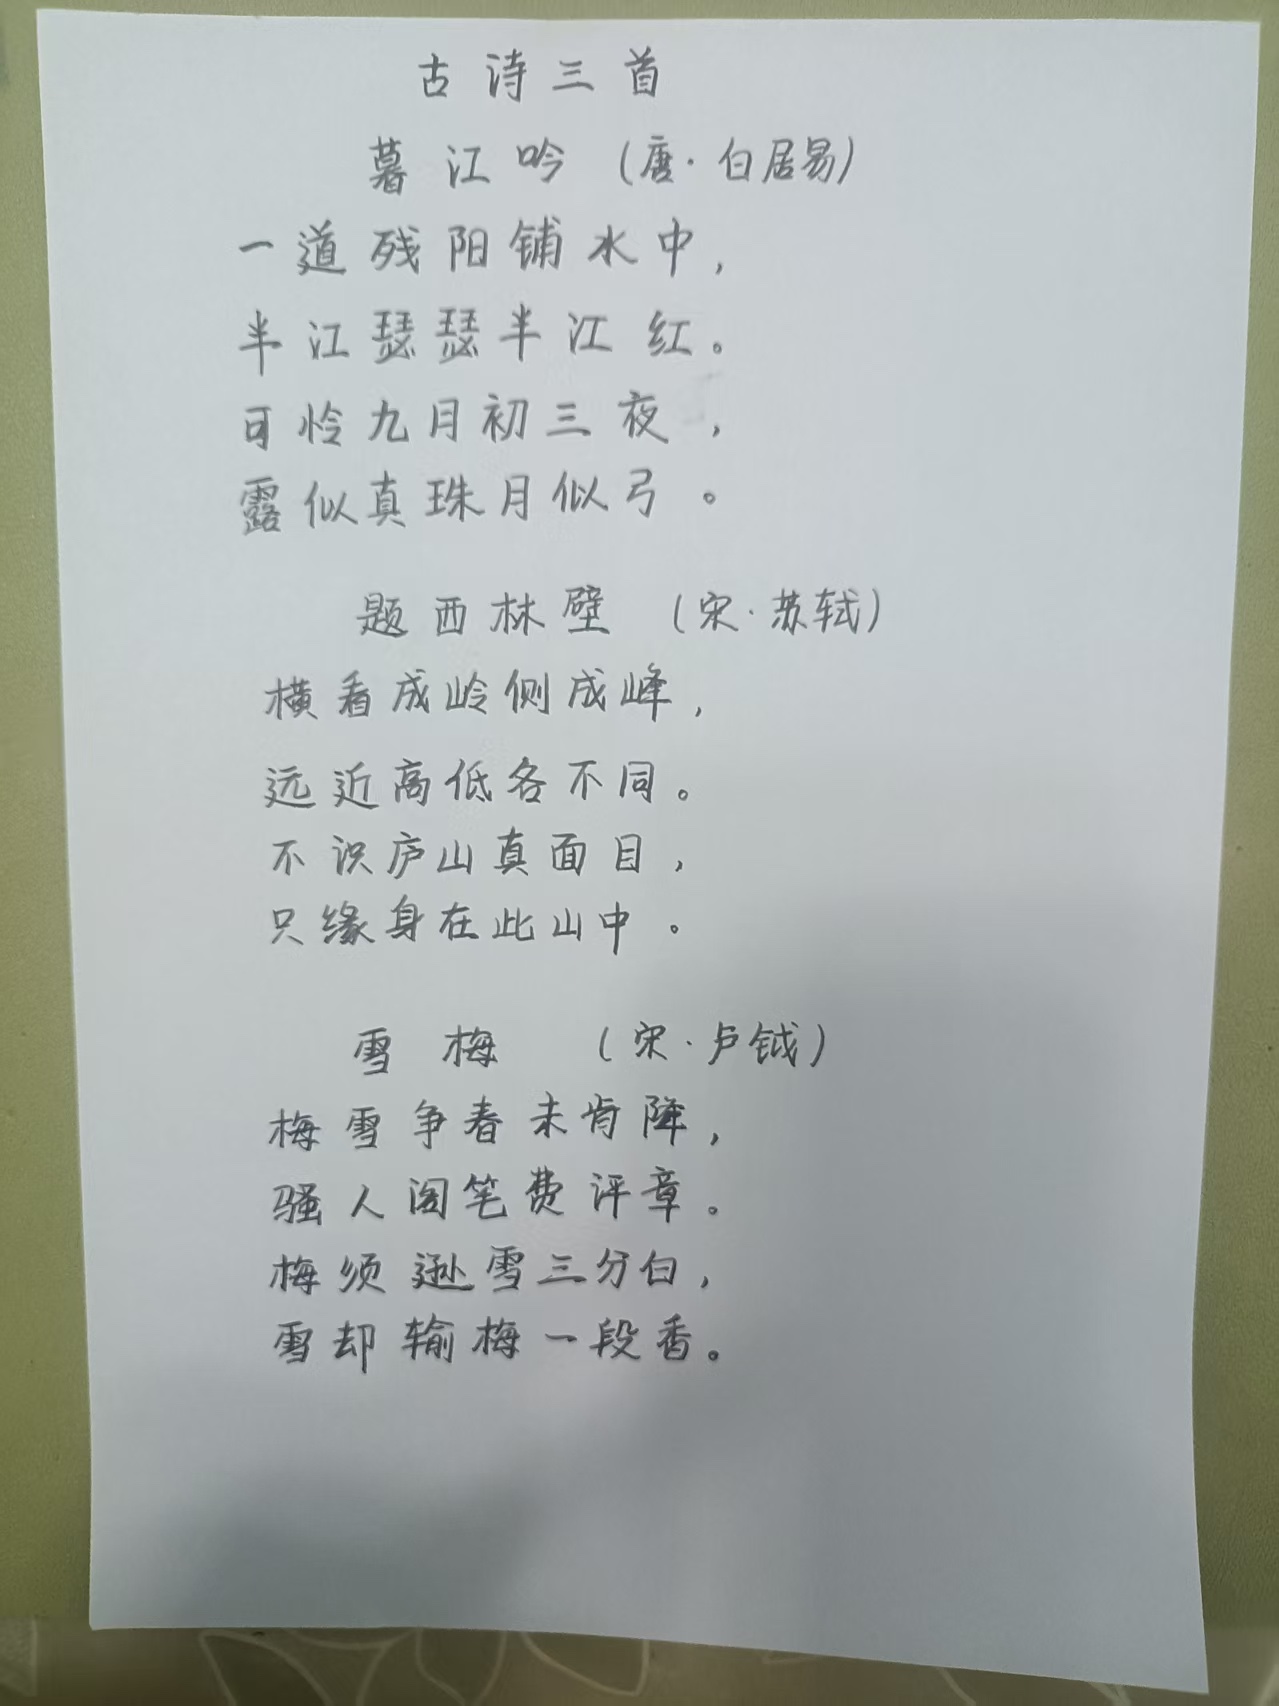 古诗三首
暮江吟（唐·白居易）
一道残阳铺水中，
半江瑟瑟半江红。
可怜九月初三夜，
露似真珠月似弓。
题西林壁（宋·苏轼）
横看成岭侧成峰，
远近高低各不同。
不识庐山真面目，
只缘身在此山中。
雪梅（宋·卢钺）
梅雪争春未肯降，
骚人阁笔费评章。
梅须逊雪三分白，
雪却输梅一段香。